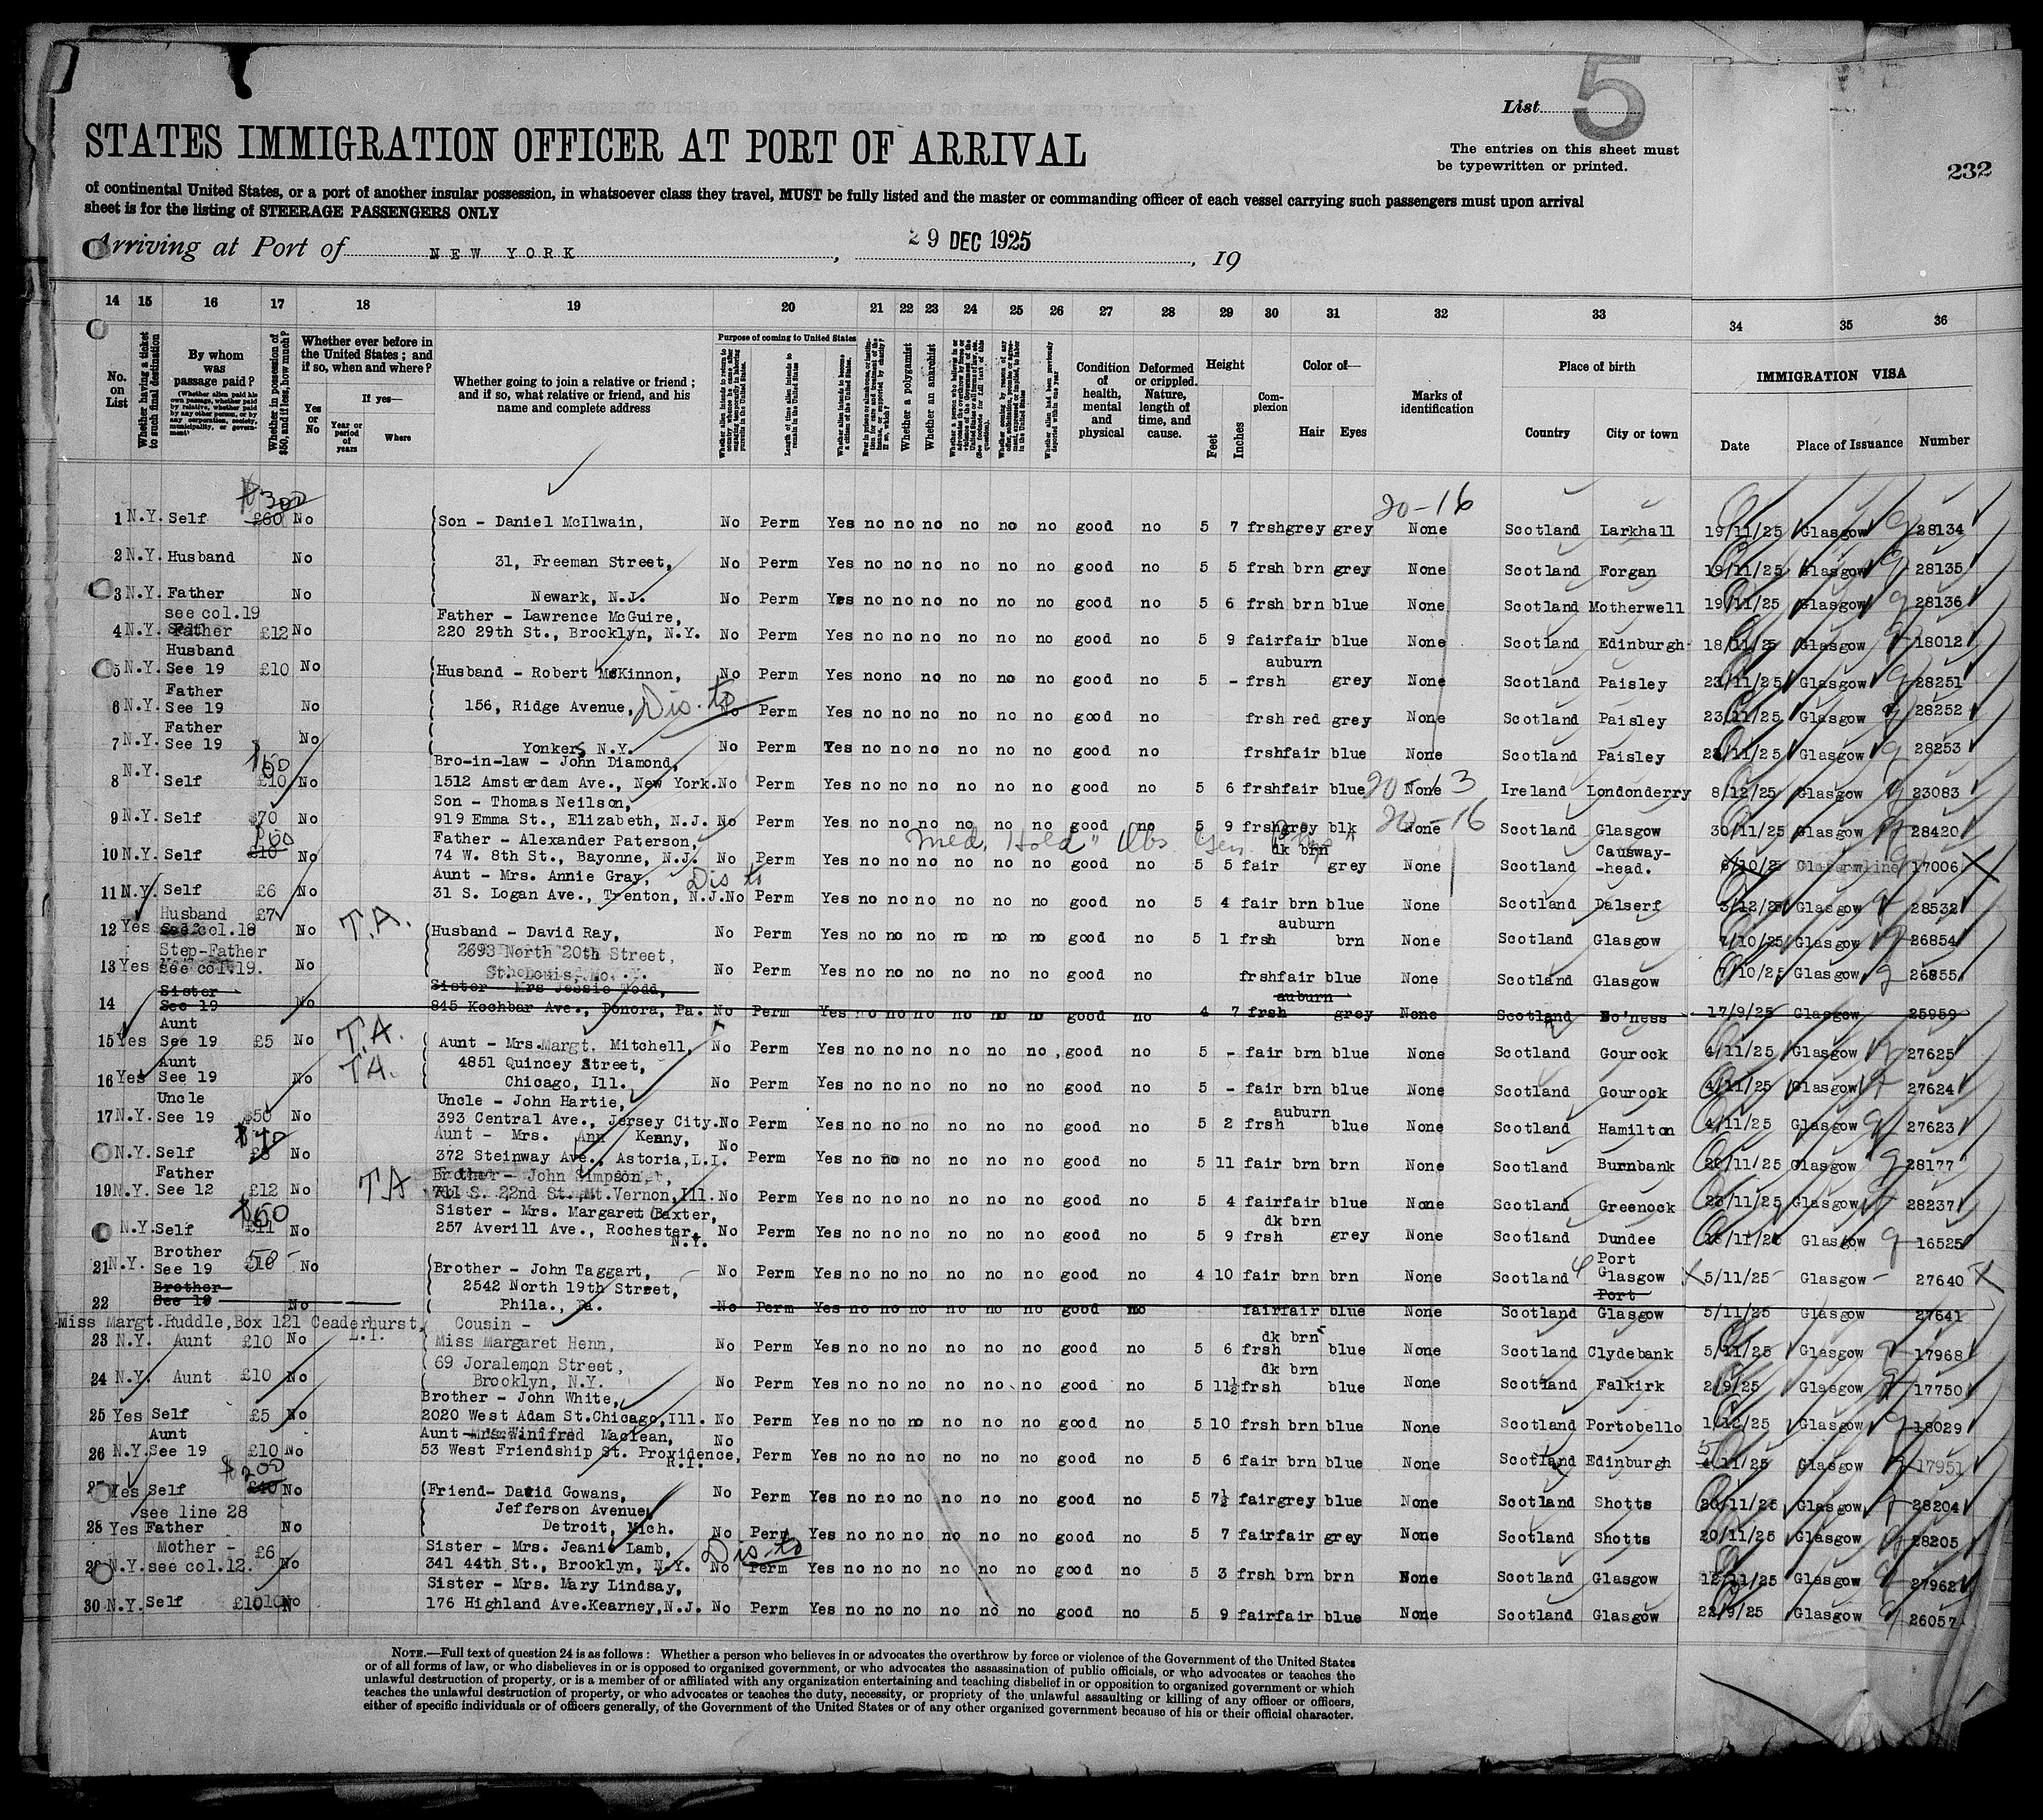 List 5
STATES IMMIGRATION OFFICER AT PORT OF ARRIVAL
The entries on this sheet must
be typewritten or printed.
232
of continental United States, or a port of another insular possession, in whatsoever class they travel, MUST be fully listed and the master or commanding officer of each vessel carrying such passengers must upon arrival
sheet is for the listing of STEERAGE PASSENGERS ONLY
Arriving at Port of NEW YORK, 29 DEC 1925, 19
14 15 16 17 18 19 20 21 22 23 24 25 26 27 28 29 30 31 32 33 34 35 36
No. on List
Whether having a ticket to such final destination
By whom was passage paid?
(Whether alien paid his own passage, whether paid by relative, whether paid by any other person, or by any corporation, society, municipality, or government)
Whether in possession of $50, and if less, how much?
Whether ever before in the United States; and if so, when and where?
Yes or No
If yes—
Year or period of years
Where
Whether going to join a relative or friend; and if so, what relative or friend, and his name and complete address
Purpose of coming to United States
Length of time alien intends to remain in the United States
Whether alien intends to become a citizen of the United States.
Whether a polygamist
Whether an anarchist
Condition of health, mental and physical
Deformed or crippled. Nature, length of time, and cause.
Height
Feet Inches
Complexion
Color of—
Hair Eyes
Marks of identification
Place of birth
Country City or town
IMMIGRATION VISA
Date Place of Issuance Number
$300 20-16
1 N.Y. Self £60 No Son - Daniel McIlwain, No Perm Yes no no no no no no good no 5 7 frsh grey grey None Scotland Larkhall 19/11/25 Glasgow 28134
2 N.Y. Husband No 31, Freeman Street, No Perm Yes no no no no no no good no 5 5 frsh brn grey None Scotland Forgan 19/11/25 Glasgow 28135
3 N.Y. Father No Newark, N.J. No Perm Yes no no no no no no good no 5 6 frsh brn blue None Scotland Motherwell 19/11/25 Glasgow 28136
see col.19 Father - Lawrence McGuire,
4 N.Y. Father £12 No 220 29th St., Brooklyn, N.Y. No Perm Yes no no no no no no good no 5 9 fair fair blue None Scotland Edinburgh 18/11/25 Glasgow 18012
Husband auburn
5 N.Y. See 19 £10 No Husband - Robert McKinnon, No Perm Yes no no no no no no good no 5 - frsh grey None Scotland Paisley 23/11/25 Glasgow 28251
Father
6 N.Y. See 19 No 156, Ridge Avenue, Dis. to No Perm Yes no no no no no no good no frsh red grey None Scotland Paisley 23/11/25 Glasgow 28252
Father
7 N.Y. See 19 No Yonkers, N.Y. No Perm Yes no no no no no no good no frsh fair blue None Scotland Paisley 23/11/25 Glasgow 28253
$60 Bro-in-law - John Diamond,
8 N.Y. Self £10 No 1512 Amsterdam Ave., New York. No Perm Yes no no no no no no good no 5 6 frsh fair blue 20-13 None Ireland Londonderry 8/12/25 Glasgow 23083
Son - Thomas Neilson,
9 N.Y. Self $70 No 919 Emma St., Elizabeth, N.J. No Perm Yes no no no no no no good no 5 9 frsh grey blk 20-16 None Scotland Glasgow 30/11/25 Glasgow 28420
$60 Father - Alexander Paterson, Med. Hold" Obs. Gen. dk brn Causway-
10 N.Y. Self £10 No 74 W. 8th St., Bayonne, N.J. No Perm Yes no no no no no no good no 5 5 fair grey None Scotland -head. 6/10/25 17006
Aunt - Mrs. Annie Gray, Dis to
11 N.Y. Self £6 No 31 S. Logan Ave., Trenton, N.J. No Perm Yes no no no no no no good no 5 4 fair brn blue None Scotland Dalserf 3/12/25 Glasgow 28532
Husband £7 auburn
12 Yes See col.19 No T.A. Husband - David Ray, No Perm Yes no no no no no no good no 5 1 frsh brn None Scotland Glasgow 7/10/25 Glasgow 26854
Step-Father 2693 North 20th Street,
13 Yes see col.19. No St. Louis, Mo. No Perm Yes no no no no no no good no frsh fair blue None Scotland Glasgow 7/10/25 Glasgow 26855
Sister Sister - Mrs Jessie Todd, auburn
14 See 19 No 845 Kochbar Ave., Donora, Pa. No Perm Yes no no no no no no good no 4 7 frsh grey None Scotland Bo'ness 17/9/25 Glasgow 25959
Aunt
15 Yes See 19 £5 No T.A. Aunt - Mrs. Margt. Mitchell, No Perm Yes no no no no no no good no 5 - fair brn blue None Scotland Gourock 4/11/25 Glasgow 27625
Aunt 4851 Quincey Street,
16 Yes See 19 No T.A. Chicago, Ill. No Perm Yes no no no no no no good no 5 - fair brn blue None Scotland Gourock 4/11/25 Glasgow 27624
Uncle Uncle - John Hartie, auburn
17 N.Y. See 19 $50 No 393 Central Ave., Jersey City. No Perm Yes no no no no no no good no 5 2 frsh blue None Scotland Hamilton 4/11/25 Glasgow 27623
$40 Aunt - Mrs. Ann Kenny,
N.Y. Self £8 No 372 Steinway Ave., Astoria, L.I. No Perm Yes no no no no no no good no 5 11 fair brn brn None Scotland Burnbank 20/11/25 Glasgow 28177
Father Brother - John Simpson,
19 N.Y. See 12 £12 No T A 711 S. 22nd St., Mt. Vernon, Ill. No Perm Yes no no no no no no good no 5 4 fair fair blue None Scotland Greenock 23/11/25 Glasgow 28237
$60 Sister - Mrs. Margaret Baxter, dk brn
N.Y. Self £11 No 257 Averill Ave., Rochester, N.Y. No Perm Yes no no no no no no good no 5 9 frsh grey None Scotland Dundee Glasgow 16525
Brother 50- Port
21 N.Y. See 19 £10 No Brother - John Taggart, No Perm Yes no no no no no no good no 4 10 fair brn brn None Scotland Glasgow 5/11/25 Glasgow 27640
Brother 2542 North 19th Street, Port
22 See 19 No Phila., Pa. No Perm Yes no no no no no no good no fair fair blue None Scotland Glasgow 5/11/25 Glasgow 27641
Miss Margt. Ruddle, Box 121 Ceaderhurst, L.I. Cousin - dk brn
23 N.Y. Aunt £10 No Miss Margaret Henn, No Perm Yes no no no no no no good no 5 6 frsh blue None Scotland Clydebank 5/11/25 Glasgow 17968
69 Joralemon Street, dk brn
24 N.Y. Aunt £10 No Brooklyn, N.Y. No Perm Yes no no no no no no good no 5 11½ frsh blue None Scotland Falkirk 2/9/25 Glasgow 17750
Brother - John White,
25 Yes Self £5 No 2020 West Adam St. Chicago, Ill. No Perm Yes no no no no no no good no 5 10 frsh brn blue None Scotland Portobello 1/12/25 Glasgow 18029
Aunt Aunt - Mrs. Winifred Maclean, 5
26 N.Y. See 19 £10 No 53 West Friendship St. Providence, R.I. No Perm Yes no no no no no no good no 5 6 fair brn blue None Scotland Edinburgh 4/11/25 Glasgow 17951
$200
27 Yes Self £40 No Friend - David Gowans, No Perm Yes no no no no no no good no 5 7½ fair grey blue None Scotland Shotts 20/11/25 Glasgow 28204
see line 28 Jefferson Avenue,
28 Yes Father No Detroit, Mich. No Perm Yes no no no no no no good no 5 7 fair fair grey None Scotland Shotts 20/11/25 Glasgow 28205
Mother - £6 Sister - Mrs. Jeanie Lamb, Dis. to
29 N.Y. see col.12. No 341 44th St., Brooklyn, N.Y. No Perm Yes no no no no no no good no 5 3 frsh brn brn None Scotland Glasgow 12/11/25 Glasgow 27962
Sister - Mrs. Mary Lindsay,
30 N.Y. Self £10 No 176 Highland Ave. Kearney, N.J. No Perm Yes no no no no no no good no 5 9 fair fair blue None Scotland Glasgow 22/9/25 Glasgow 26057
NOTE.—Full text of question 24 is as follows: Whether a person who believes in or advocates the overthrow by force or violence of the Government of the United States
or of all forms of law, or who disbelieves in or is opposed to organized government, or who advocates the assassination of public officials, or who advocates or teaches the
unlawful destruction of property, or is a member of or affiliated with any organization entertaining and teaching disbelief in or opposition to organized government or which
teaches the unlawful destruction of property, or who advocates or teaches the duty, necessity, or propriety of the unlawful assaulting or killing of any officer or officers,
either of specific individuals or of officers generally, of the Government of the United States or of any other organized government because of his or their official character.